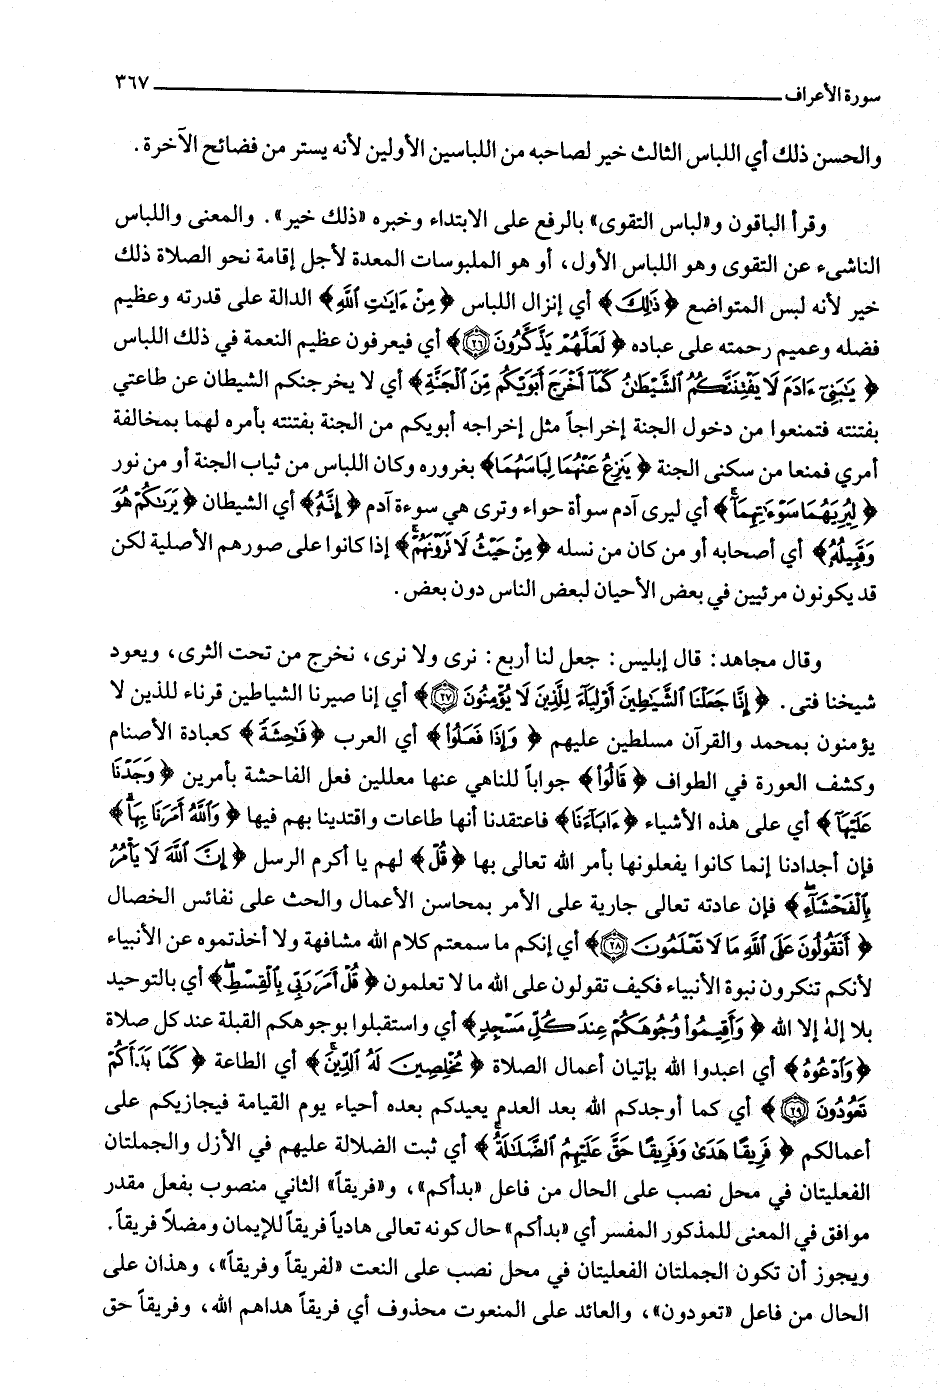 سورة الأعراف ٣٦٧
والحسن ذلك أي اللباس الثالث خير لصاحبه من اللباسين الأولين لأنه يستر من فضائح الآخرة.
وقرأ الباقون و«لباس التقوى» بالرفع على الابتداء وخبره «ذلك خير». والمعنى واللباس
الناشىء عن التقوى وهو اللباس الأول، أو هو الملبوسات المعدة لأجل إقامة نحو الصلاة ذلك
خير لأنه لبس المتواضع ﴿ذَٰلِكَ﴾ أي إنزال اللباس ﴿مِنْ ءَايَٰتِ ٱللَّهِ﴾ الدالة على قدرته وعظيم
فضله وعميم رحمته على عباده ﴿لَعَلَّهُمْ يَذَّكَّرُونَ ۝٢٦﴾ أي فيعرفون عظيم النعمة في ذلك اللباس
﴿يَٰبَنِىٓ ءَادَمَ لَا يَفْتِنَنَّكُمُ ٱلشَّيْطَٰنُ كَمَآ أَخْرَجَ أَبَوَيْكُم مِّنَ ٱلْجَنَّةِ﴾ أي لا يخرجنكم الشيطان عن طاعتي
بفتنته فتمنعوا من دخول الجنة إخراجاً مثل إخراجه أبويكم من الجنة بفتنته بأمره لهما بمخالفة
أمري فمنعا من سكنى الجنة ﴿يَنزِعُ عَنْهُمَا لِبَاسَهُمَا﴾ بغروره وكان اللباس من ثياب الجنة أو من نور
﴿لِيُرِيَهُمَا سَوْءَٰتِهِمَآ﴾ أي ليرى آدم سوأة حواء وترى هي سوءة آدم ﴿إِنَّهُۥ﴾ أي الشيطان ﴿يَرَىٰكُمْ هُوَ
وَقَبِيلُهُۥ﴾ أي أصحابه أو من كان من نسله ﴿مِنْ حَيْثُ لَا نَرَوْنَهُمْ﴾ إذا كانوا على صورهم الأصلية لكن
قد يكونون مرئيين في بعض الأحيان لبعض الناس دون بعض.
وقال مجاهد: قال إبليس: جعل لنا أربع: نرى ولا نرى، نخرج من تحت الثرى، ويعود
شيخنا فتى. ﴿إِنَّا جَعَلْنَا ٱلشَّيَٰطِينَ أَوْلِيَآءَ لِلَّذِينَ لَا يُؤْمِنُونَ ۝٢٧﴾ أي إنا صيرنا الشياطين قرناء للذين لا
يؤمنون بمحمد والقرآن مسلطين عليهم ﴿وَإِذَا فَعَلُوا۟﴾ أي العرب ﴿فَٰحِشَةً﴾ كعبادة الأصنام
وكشف العورة في الطواف ﴿قَالُوا۟﴾ جواباً للناهي عنها معللين فعل الفاحشة بأمرين ﴿وَجَدْنَا
عَلَيْهَآ﴾ أي على هذه الأشياء ﴿ءَابَآءَنَا﴾ فاعتقدنا أنها طاعات واقتدينا بهم فيها ﴿وَٱللَّهُ أَمَرَنَا بِهَا﴾
فإن أجدادنا إنما كانوا يفعلونها بأمر الله تعالى بها ﴿قُلْ﴾ لهم يا أكرم الرسل ﴿إِنَّ ٱللَّهَ لَا يَأْمُرُ
بِٱلْفَحْشَآءِ﴾ فإن عادته تعالى جارية على الأمر بمحاسن الأعمال والحث على نفائس الخصال
﴿أَتَقُولُونَ عَلَى ٱللَّهِ مَا لَا تَعْلَمُونَ ۝٢٨﴾ أي إنكم ما سمعتم كلام الله مشافهة ولا أخذتموه عن الأنبياء
لأنكم تنكرون نبوة الأنبياء فكيف تقولون على الله ما لا تعلمون ﴿قُلْ أَمَرَ رَبِّى بِٱلْقِسْطِ﴾ أي بالتوحيد
بلا إله إلا الله ﴿وَأَقِيمُوا۟ وُجُوهَكُمْ عِندَ كُلِّ مَسْجِدٍ﴾ أي واستقبلوا بوجوهكم القبلة عند كل صلاة
﴿وَٱدْعُوهُ﴾ أي اعبدوا الله بإتيان أعمال الصلاة ﴿مُخْلِصِينَ لَهُ ٱلدِّينَ﴾ أي الطاعة ﴿كَمَا بَدَأَكُمْ
تَعُودُونَ ۝٢٩﴾ أي كما أوجدكم الله بعد العدم يعيدكم بعده أحياء يوم القيامة فيجازيكم على
أعمالكم ﴿فَرِيقًا هَدَىٰ وَفَرِيقًا حَقَّ عَلَيْهِمُ ٱلضَّلَٰلَةُ﴾ أي ثبت الضلالة عليهم في الأزل والجملتان
الفعليتان في محل نصب على الحال من فاعل «بدأكم»، و«فريقاً» الثاني منصوب بفعل مقدر
موافق في المعنى للمذكور المفسر أي «بدأكم» حال كونه تعالى هادياً فريقاً للإيمان ومضلاً فريقاً.
ويجوز أن تكون الجملتان الفعليتان في محل نصب على النعت «لفريقاً وفريقاً»، وهذان على
الحال من فاعل «تعودون»، والعائد على المنعوت محذوف أي فريقاً هداهم الله، وفريقاً حق